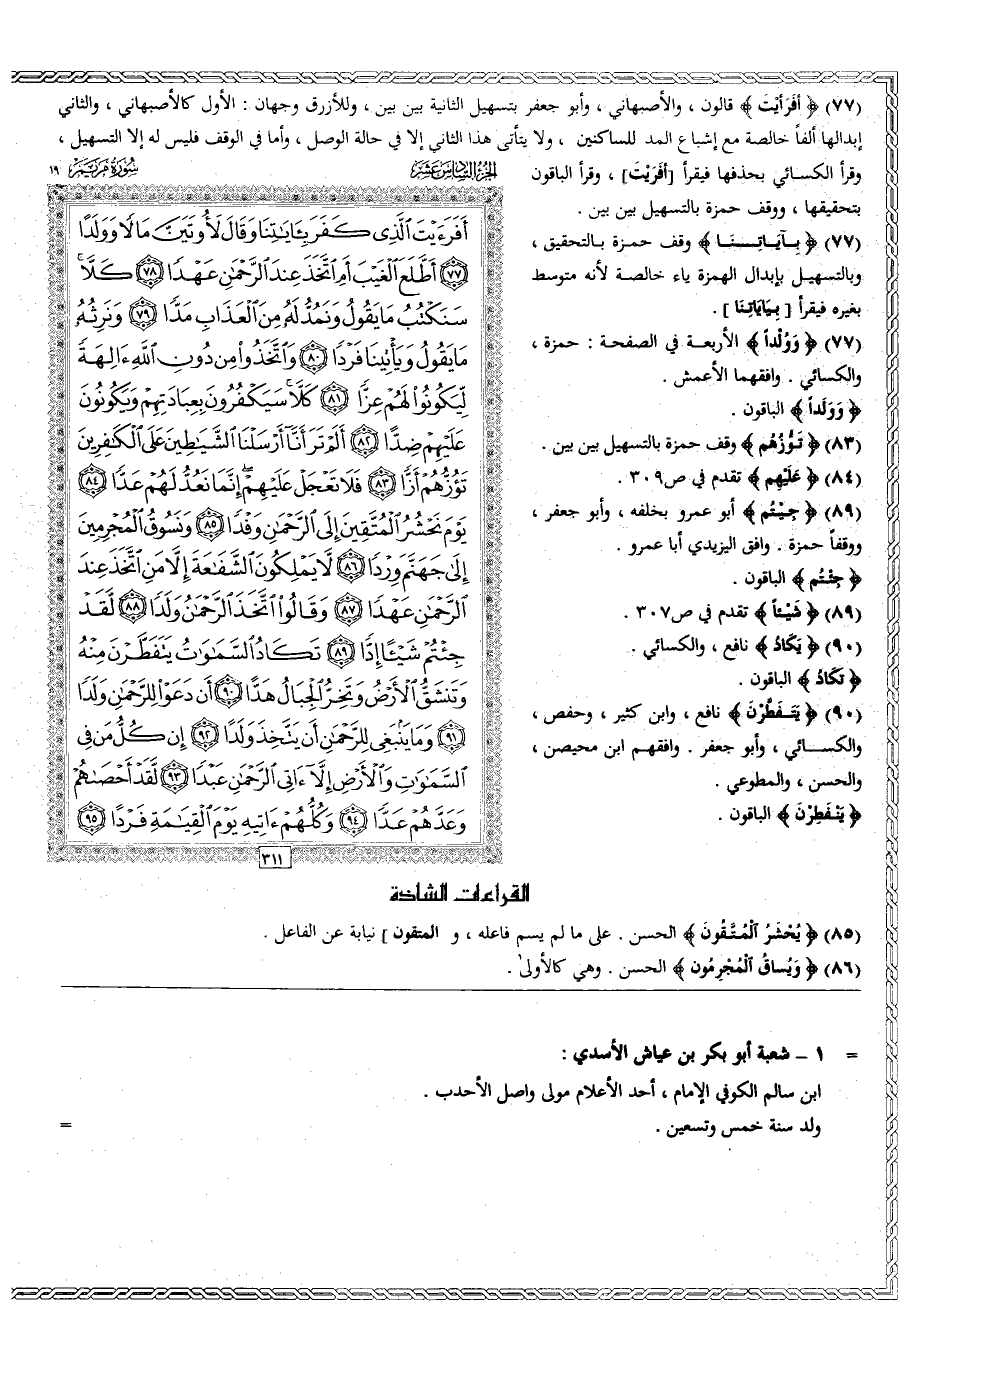 (٧٧) ﴿ أَفَرَأَيْتَ ﴾ قالون ، والأصبهاني ، وأبو جعفر بتسهيل الثانية بين بين ، وللأزرق وجهان : الأول كالأصبهاني ، والثاني
إبدالها ألفاً خالصة مع إشباع المد للساكنين ، ولا يتأتى هذا الثاني إلا في حالة الوصل ، وأما في الوقف فليس له إلا التسهيل ،
وقرأ الكسائي بحذفها فيقرأ [أفَرَيْتَ] ، وقرأ الباقون
بتحقيقها ، ووقف حمزة بالتسهيل بين بين .
(٧٧) ﴿ بِـآيَـاتِـنَـا ﴾ وقف حمزة بـالتحقيق ،
وبالتسهيـل بإبدال الهمزة ياء خالصـة لأنه متوسط
بغيره فيقرأ [ بِيَايَاتِنَا ] .
(٧٧) ﴿ وَوُلْداً ﴾ الأربعـة في الصفحـة : حمزة ،
والكسائي . وافقهما الأعمش .
﴿ وَوَلَداً ﴾ الباقون .
(٨٣) ﴿ تَـؤُزُّهُم ﴾ وقف حمزة بالتسهيل بين بين .
(٨٤) ﴿ عَلَيْهِم ﴾ تقدم في ص٣٠٩ .
(٨٩) ﴿ جِـيْتُم ﴾ أبو عمرو بخلفه ، وأبو جعفر ،
ووقفاً حمزة . وافق اليزيدي أبا عمرو .
﴿ جِئْتُم ﴾ الباقون .
(٨٩) ﴿ شَيْئاً ﴾ تقدم في ص٣٠٧ .
(٩٠) ﴿ يَكَادُ ﴾ نافع ، والكسائي .
﴿ تَكَادُ ﴾ الباقون .
(٩٠) ﴿ يَتَـفَطَّرْنَ ﴾ نافع ، وابن كثير ، وحفص ،
والكسـائي ، وأبو جعفر . وافقهـم ابن محيصن ،
والحسن ، والمطوعي .
﴿ يَنْفَطِرْنَ ﴾ الباقون .
الجزء السادس عشر
سورة مريم ١٩
أَفَرَءَيْتَ ٱلَّذِى كَفَرَ بِـَٔايَـٰتِنَا وَقَالَ لَأُوتَيَنَّ مَالًا وَوَلَدًا
﴿٧٧﴾ أَطَّلَعَ ٱلْغَيْبَ أَمِ ٱتَّخَذَ عِندَ ٱلرَّحْمَـٰنِ عَهْدًا ﴿٧٨﴾ كَلَّا ۚ
سَنَكْتُبُ مَا يَقُولُ وَنَمُدُّ لَهُۥ مِنَ ٱلْعَذَابِ مَدًّا ﴿٧٩﴾ وَنَرِثُهُۥ
مَا يَقُولُ وَيَأْتِينَا فَرْدًا ﴿٨٠﴾ وَٱتَّخَذُوا۟ مِن دُونِ ٱللَّهِ ءَالِهَةً
لِّيَكُونُوا۟ لَهُمْ عِزًّا ﴿٨١﴾ كَلَّا ۚ سَيَكْفُرُونَ بِعِبَادَتِهِمْ وَيَكُونُونَ
عَلَيْهِمْ ضِدًّا ﴿٨٢﴾ أَلَمْ تَرَ أَنَّآ أَرْسَلْنَا ٱلشَّيَـٰطِينَ عَلَى ٱلْكَـٰفِرِينَ
تَؤُزُّهُمْ أَزًّا ﴿٨٣﴾ فَلَا تَعْجَلْ عَلَيْهِمْ ۖ إِنَّمَا نَعُدُّ لَهُمْ عَدًّا ﴿٨٤﴾
يَوْمَ نَحْشُرُ ٱلْمُتَّقِينَ إِلَى ٱلرَّحْمَـٰنِ وَفْدًا ﴿٨٥﴾ وَنَسُوقُ ٱلْمُجْرِمِينَ
إِلَىٰ جَهَنَّمَ وِرْدًا ﴿٨٦﴾ لَّا يَمْلِكُونَ ٱلشَّفَـٰعَةَ إِلَّا مَنِ ٱتَّخَذَ عِندَ
ٱلرَّحْمَـٰنِ عَهْدًا ﴿٨٧﴾ وَقَالُوا۟ ٱتَّخَذَ ٱلرَّحْمَـٰنُ وَلَدًا ﴿٨٨﴾ لَّقَدْ
جِئْتُمْ شَيْـًٔا إِدًّا ﴿٨٩﴾ تَكَادُ ٱلسَّمَـٰوَٰتُ يَتَفَطَّرْنَ مِنْهُ
وَتَنشَقُّ ٱلْأَرْضُ وَتَخِرُّ ٱلْجِبَالُ هَدًّا ﴿٩٠﴾ أَن دَعَوْا۟ لِلرَّحْمَـٰنِ وَلَدًا
﴿٩١﴾ وَمَا يَنۢبَغِى لِلرَّحْمَـٰنِ أَن يَتَّخِذَ وَلَدًا ﴿٩٢﴾ إِن كُلُّ مَن فِى
ٱلسَّمَـٰوَٰتِ وَٱلْأَرْضِ إِلَّآ ءَاتِى ٱلرَّحْمَـٰنِ عَبْدًا ﴿٩٣﴾ لَّقَدْ أَحْصَىٰهُمْ
وَعَدَّهُمْ عَدًّا ﴿٩٤﴾ وَكُلُّهُمْ ءَاتِيهِ يَوْمَ ٱلْقِيَـٰمَةِ فَرْدًا ﴿٩٥﴾
٣١١
القراءات الشاذة
(٨٥) ﴿ يُحْشَرُ الْمُـتَّقُونَ ﴾ الحسن . على ما لم يسم فاعله ، و المتقون ] نيابة عن الفاعل .
(٨٦) ﴿ وَيُساقُ الْمُجْرِمُون ﴾ الحسن . وهي كالأولى .
= ١ ـ شعبة أبو بكر بن عياش الأسدي :
ابن سالم الكوفي الإمام ، أحد الأعلام مولى واصل الأحدب .
ولد سنة خمس وتسعين . =